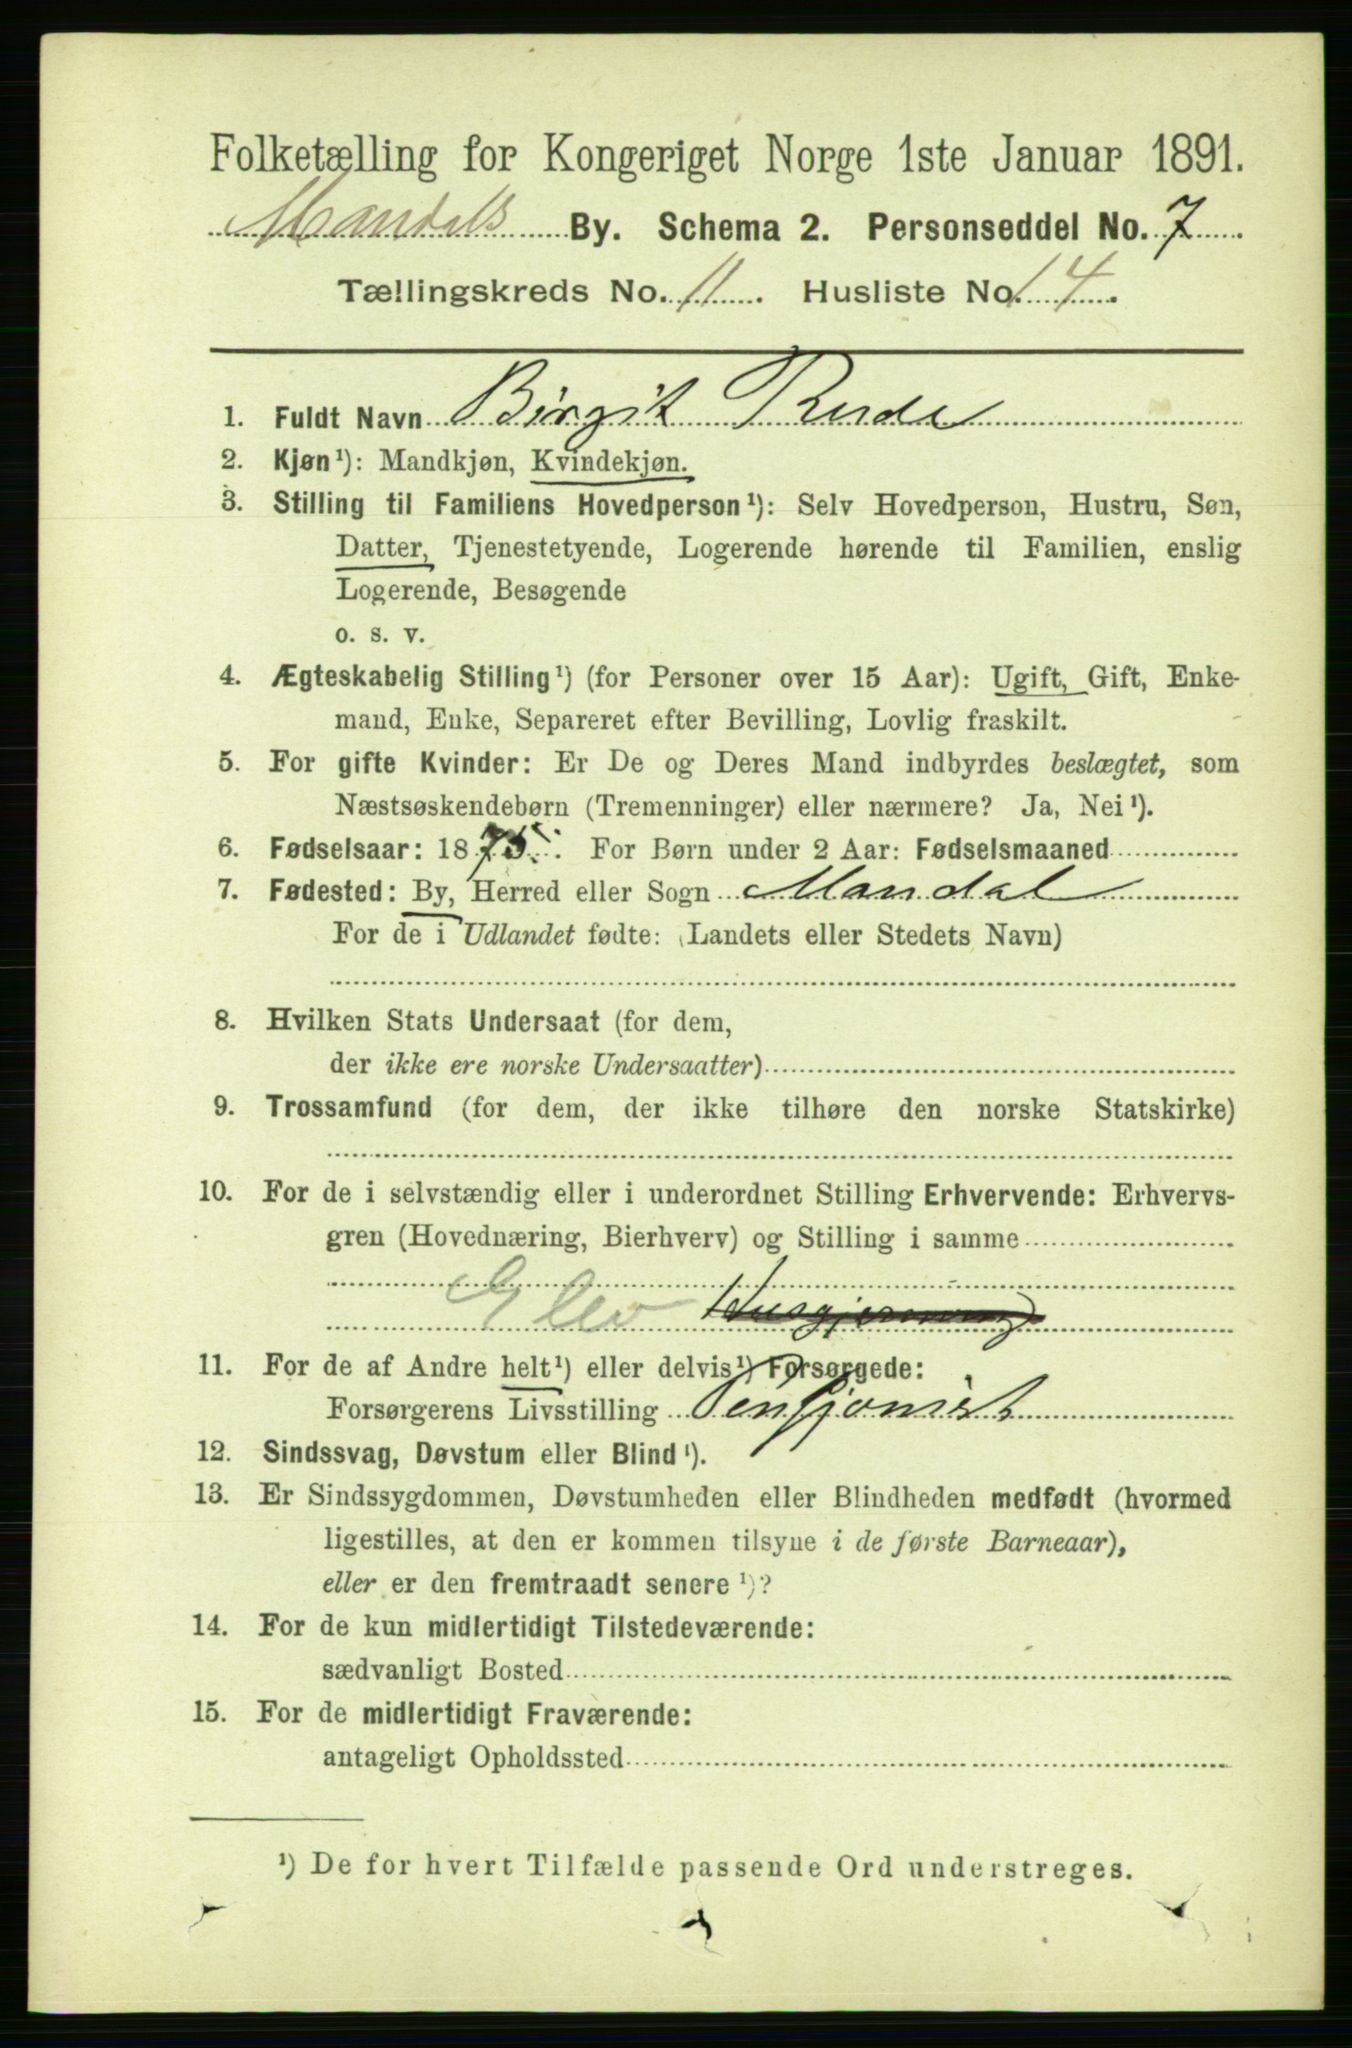 Folketælling for Kongeriget Norge 1ste Januar 1891.
Mandals By. Schema 2. Personseddel No. 7
Tællingskreds No. 11. Husliste No. 14.
1. Fuldt Navn Birgit Ruda
2. Kjøn¹): Mandkjøn, Kvindekjøn.
3. Stilling til Familiens Hovedperson¹): Selv Hovedperson, Hustru, Søn,
Datter, Tjenestetyende, Logerende hørende til Familien, enslig
Logerende, Besøgende
o. s. v.
4. Ægteskabelig Stilling¹) (for Personer over 15 Aar): Ugift, Gift, Enke-
mand, Enke, Separeret efter Bevilling, Lovlig fraskilt.
5. For gifte Kvinder: Er De og Deres Mand indbyrdes beslægtet, som
Næstsøskendebørn (Tremenninger) eller nærmere? Ja, Nei¹).
6. Fødselsaar: 1875. For Børn under 2 Aar: Fødselsmaaned
7. Fødested: By, Herred eller Sogn Mandal
For de i Udlandet fødte: (Landets eller Stedets Navn)
8. Hvilken Stats Undersaat (for dem,
der ikke ere norske Undersaatter)
9. Trossamfund (for dem, der ikke tilhøre den norske Statskirke)
10. For de i selvstændig eller i underordnet Stilling Erhvervende: Erhvervs-
gren (Hovednæring, Bierhverv) og Stilling i samme
Elev Husgjerning
11. For de af Andre helt¹) eller delvis¹) Forsørgede:
Forsørgerens Livsstilling Pensjonist
12. Sindssvag, Døvstum eller Blind¹).
13. Er Sindssygdommen, Døvstumheden eller Blindheden medfødt (hvormed
ligestilles, at den er kommen tilsyne i de første Barneaar),
eller er den fremtraadt senere¹)?
14. For de kun midlertidigt Tilstedeværende:
sædvanligt Bosted
15. For de midlertidigt Fraværende:
antageligt Opholdssted
¹) De for hvert Tilfælde passende Ord understreges.